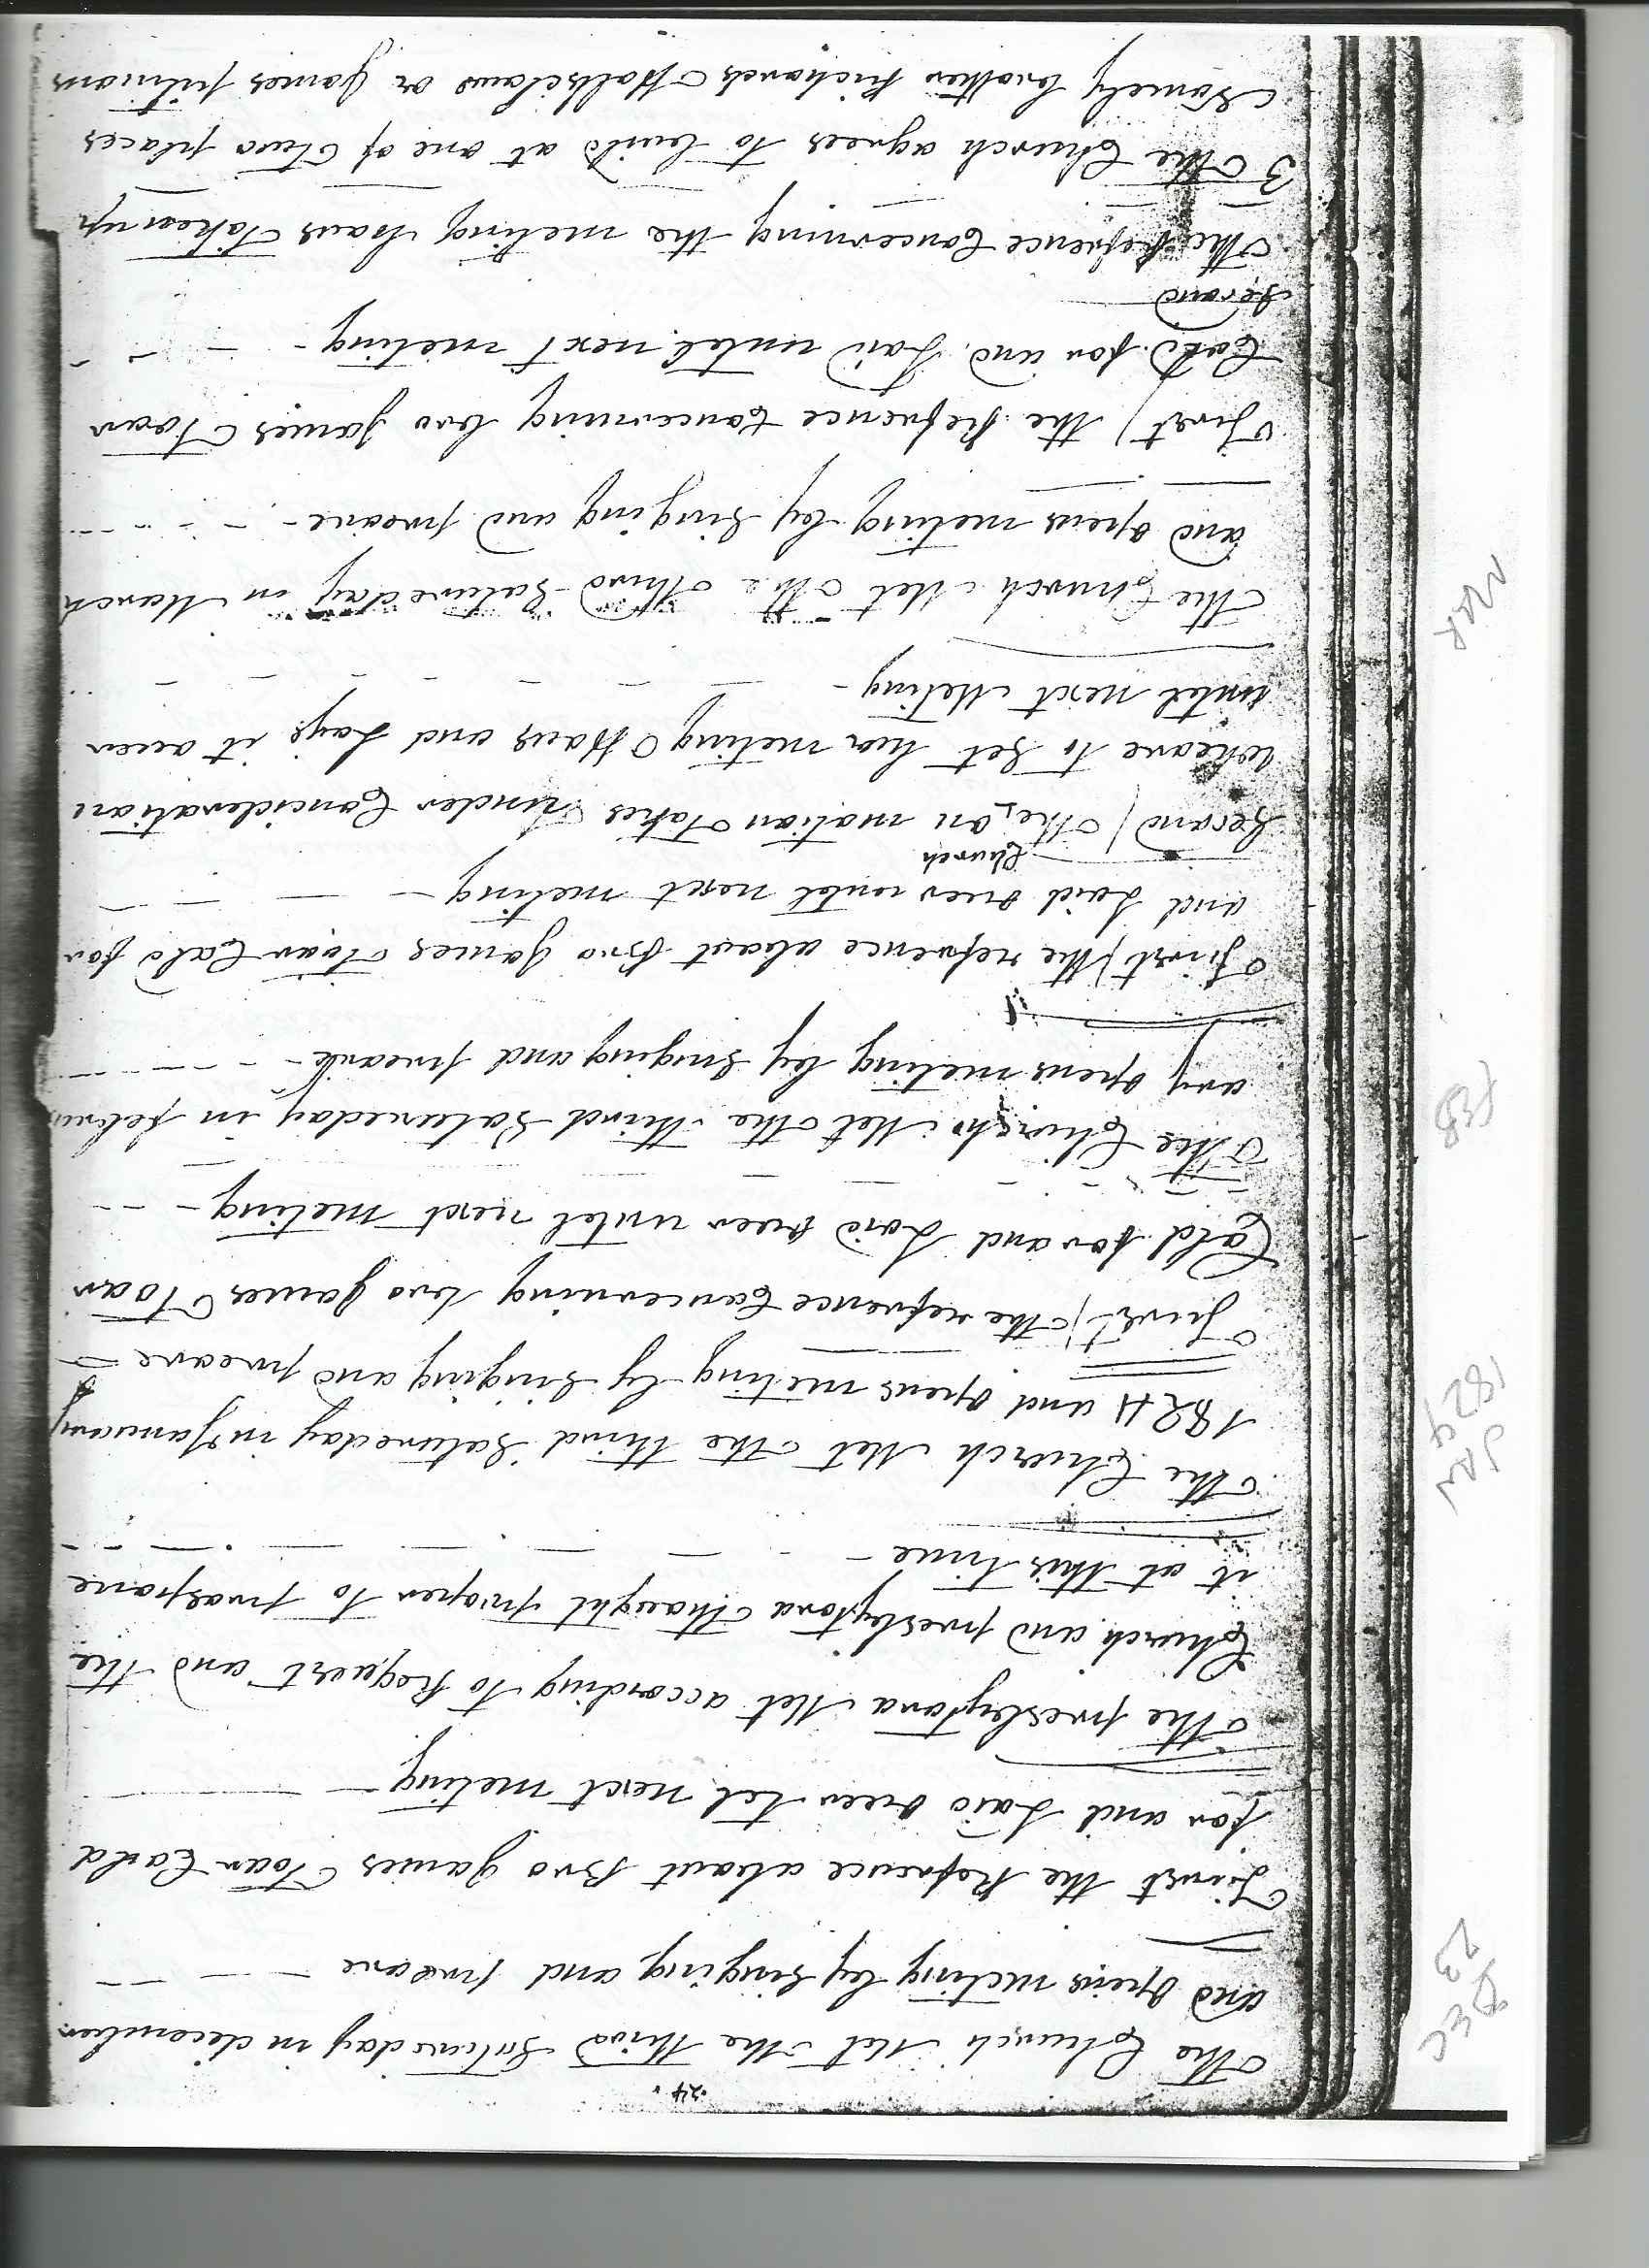 24
DEC 23
The Church Met the third Saturday in december
and opens meeting by singing and preare
First the Refrence about Bro James Toar Cauld
for and Laid over tel next meting
The presbytora Met according to Request and the
Church and presbytora thaught proper to praspane
it at this time
JAN 1824
The Church Met the third Satureday in January
1824 and opens meting by singing and preare
First) the refrence Concerning bro James Toar
Cald for and Laid over untel next meting
FEB
The Church Met the third Satureday in februa
ary opens meting by singing and preare
First) the refrence about Bro James Toar Cald for
and Laid over untel next meting
Church
Second) the on motian takes under Conciderattian
wheare to set her meting Haus and Lays it aver
untel next Meting
MAR
The Church Met the third Satureday in March
and opens meting by singing and preare
First) the Refrence Concerning bro James Toar
Cald for and Laid untel next meting
Second
the Refrence Concerning the meting haus taken up
3 the Church agrees to build at one of two places
Namely brother Richards Halsclaws or James